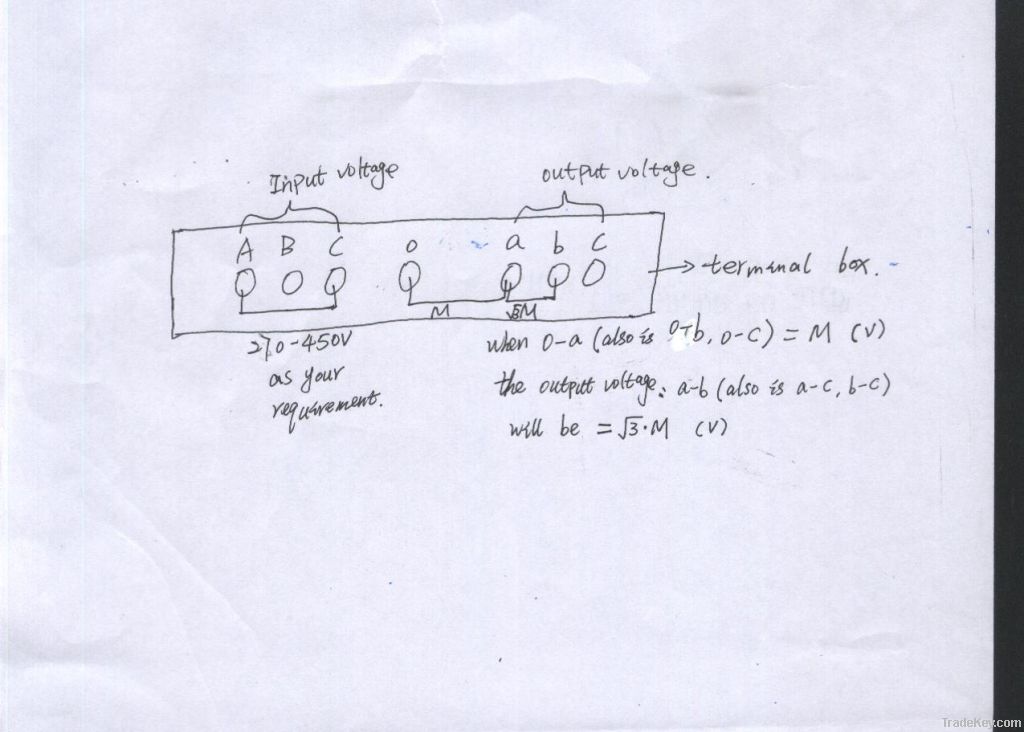 Input voltage
output voltage.
A B C o a b c
→ terminal box.
M
√3M
270-450V
as your
requirement.
when 0-a (also is 0-b, 0-c) = M (V)
the output voltage: a-b (also is a-c, b-c)
will be = √3·M (V)
TradeKey.com